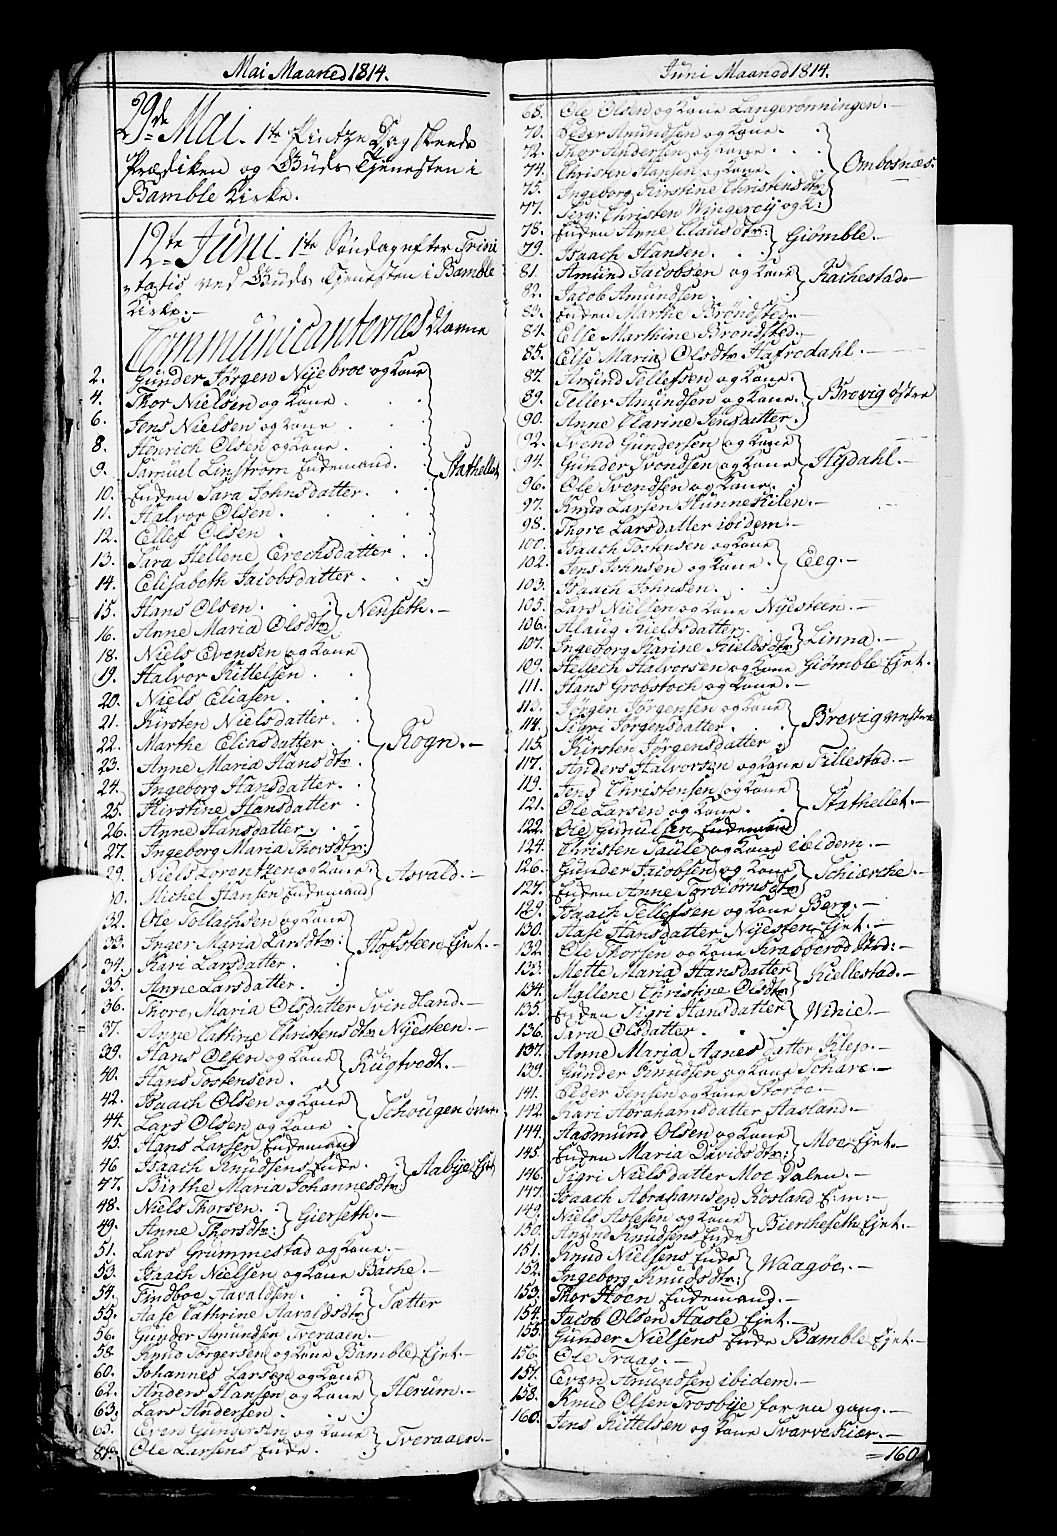 Mai Maaned 1814.
29de Mai. 1te Pintze Dag skeede
Prædiken og Guds Tjenesten i
Bamble Kirke.
12te Juni. 1te Søndag efter Trini
tatis ved Guds Tjenesten i Bamble
Kirke.
Communicanternes Navne
2. Gunder Jørgen Nyebroe og Kone
4. Thor Nielsen og Kone
6. Jens Nielsen og Kone
8. Henrich Olsen og Kone
9. Samuel Linstrøm Enkemand. Stathellet
10. Enken Sara Johnsdatter.
11. Halvor Olsen.
12. Ellef Olsen
13. Sara Hellene Erechsdatter
14. Elisabeth Jacobsdatter
15. Hans Olsen. Nenseth.
16. Anne Maria Olsdtr
18. Niels Evensen og Kone
19. Halvor Kittelsen
20. Niels Eliasen
21. Kirsten Nielsdatter.
22. Marthe Eliasdatter Rogn.
23. Anne Maria Hansdtr
24. Ingeborg Hansdatter.
25. Kirstine Hansdatter
26. Anne Hansdatter.
27. Ingeborg Maria Thorsdtr:
29. Niels Lorentzen og Kone: Asvald.
30. Michel Hansen Enkemand
32. Ole Tollachsen og Kone
33. Inger Maria Larsdtr: Hogsteen Ejet.
34. Kari Larsdatter.
35. Anne Larsdatter.
36. Thore Maria Olsdatter Svindland.
37. Anne Cathrine Christensdtr Nyesteen.
39. Hans Olsen og Kone Rugtvedt.
40. Hans Tostensen.
42. Isaach Olsen og Kone Schougen øvre.
44. Lars Olsen og Kone
45. Hans Larsen Enkemand
46 Isaach Knudsens Enke. Aabye Ejet
47. Birthe Maria Johannesdtr
48. Niels Thorsen. Gierseth.
49. Anne Thorsdtr:
51. Lars Grummestad og Kone.
53. Isaach Nielsen og Kone Bathe.
54. Findboe Aavaldsen. Sætter
55. Aase Cathrine Aavaldsdtr
56. Gunder Amundsen Tveraaen.
58 Knud Jørgensen og Kone Bamble Ejet.
60. Johannes Larsen og Kone
62. Anders Hansen og Kone Herum.
63. Lars Andersen
65. Even Gundersen og Kone Tveraaen.
Ole Larsens Enke.
Juni Maaned 1814.
68. Ole Olsen og Kone Langerønningen.
70. Peder Amundsen og Kone.
72. Thor Andersen og Kone Ombosnæs.
74. Christen Hansen og Kone.
75. Ingeborg Kirstine Christensdtr
77. Serg: Christen Wingereij og K:
78. Enken Anne Clausdtr: Giømble.
79. Isaach Hansen.
81. Amund Jacobsen og Kone Rachestad.
82. Jacob Amundsen.
83. Enken Marthe Brøndsted.
84. Else Marthine Brøndsted.
85. Else Maria Olsdtr Hafredahl.
87. Amund Tellefsen og Kone.
89. Tellev Amundsen og Kone. Brevig østre
90. Anne Clarine Jensdatter.
92. Svend Gundersen og Kone
94. Gunder Svendsen og Kone Hydahl.
96. Ole Svendsen og Kone.
97. Knud Larsen Hunnekilen.
98. Thore Larsdatter ibidem.
100. Isaach Tostensen og Kone
102. Jens Johnsen og Kone. Eeg.
103. Isaach Johnsen.
105. Lars Nielsen og Kone Nyesteen.
106. Alaug Kielsdatter. Linna.
107. Ingeborg Karine Kielsdtr
109. Hellech Halvorsen og Kone Giømble Ejet.
111. Hans Grobstoch og Kone.
113. Jørgen Jørgensen og Kone
114. Sigri Jørgensdatter. Brevig vestre
115. Kirsten Jørgensdatter
117. Anders Halvorsen og Kone Fillestad.
119. Jens Christensen og Kone
121. Ole Larsen og Kone. Stathellet.
122. Ole Gunulsen Enkemand
124. Christen Saule og Kone ibidem.
126. Gunder Jacobsen og Kone Schierche.
127. Enken Anne Torbiørnsdtr
129. Isaach Tellefsen og Kone Berg.
130. Aase Hansdatter Nyesteen Ejet.
132. Ole Thorsen og Kone
133. Mette Maria Hansdatter Kiellestad.
134. Mallene Christine Olsdtr
135. Enken Sigri Hansdatter Vinie.
136. Sara Olsdatter.
137. Anne Maria Agnesdatter Klep.
139. Gunder Knudsen og Kone Schare.
141. Peder Jensen og Kone Storøe.
142. Kari Abrahamsdatter Aasland.
144. Aasmund Olsen og Kone Moe Ejet.
145. Enken Maria Davidsdtr:
146. Sigri Nielsdatter Moe Dalen.
147. Isaach Abrahamsen Rosland
149. Niels Assesen og Kone Bierkeseth Ejet.
150. Amund Knudsens Enke
151. Knud Nielsens Enke Waagøe.
152. Ingeborg Knudsdtr:
153. Thor Hoen Enkemand.
154. Jacob Olsen Hasle Ejet.
155. Gunder Nielsens Enke Bamble Ejet.
156. Ole Traag.
157. Even Amundsen ibidem.
158. Knud Olsen Trosbye
160. Jens Kittelsen og Kone Svarvekiær.
=160